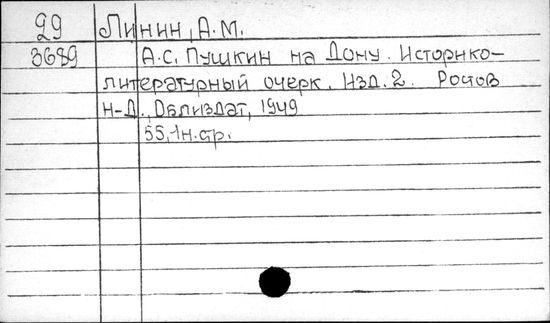 29 Линин, А.М.
3689 А.С. Пушкин на Дону. Историко-
литературный очерк. Изд. 2. Росов
н-Д., Облиздат, 1949
55, 1н. стр.